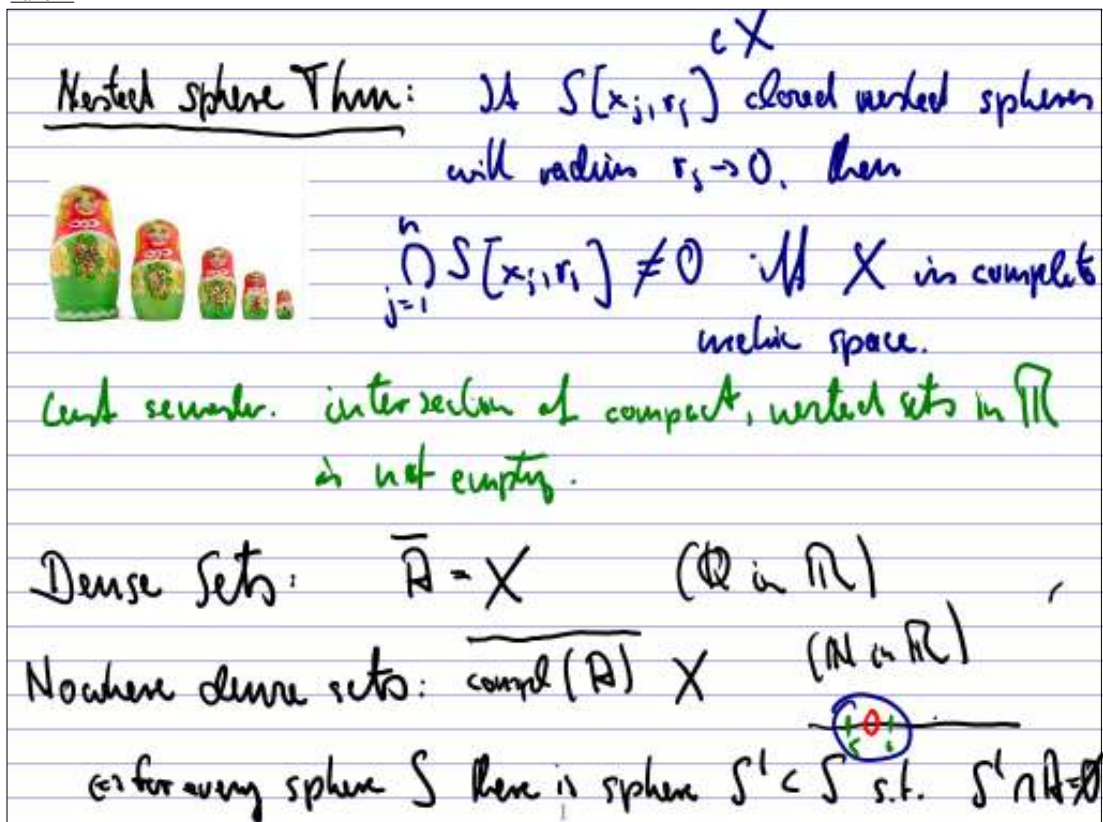 ⊂ X
Nested sphere Thm: If S[x_j, r_j] closed nested spheres
with radius r_j → 0. then
n
⋂ S[x_j, r_j] ≠ 0 iff X is complete
j=1
metric space.
Last semester. intersection of compact, nested sets in ℝ
is not empty.
Dense Sets: A̅ = X (ℚ in ℝ)
Nowhere dense sets: \overline{compl(A)} X (ℕ in ℝ)
⇔ for every sphere S there is sphere S' ⊂ S s.t. S' ∩ A = ∅